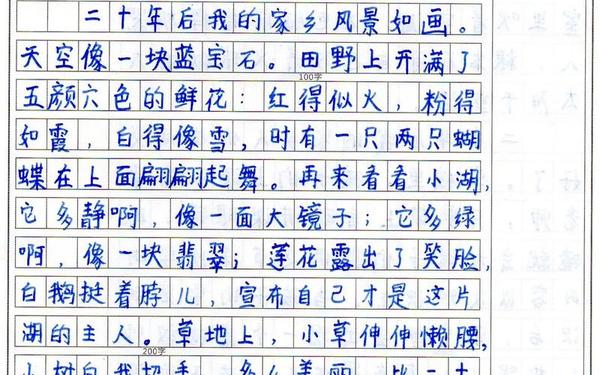 二十年后我的家乡风景如画。
天空像一块蓝宝石。田野上开满了
100字
五颜六色的鲜花：红得似火，粉得
如霞，白得像雪，时有一只两只蝴
蝶在上面翩翩起舞。再来看看小湖，
它多静啊，像一面大镜子；它多绿
啊，像一块翡翠；莲花露出了笑脸，
白鹅挺着脖儿，宣布自己才是这片
湖的主人。草地上，小草伸伸懒腰，
200字